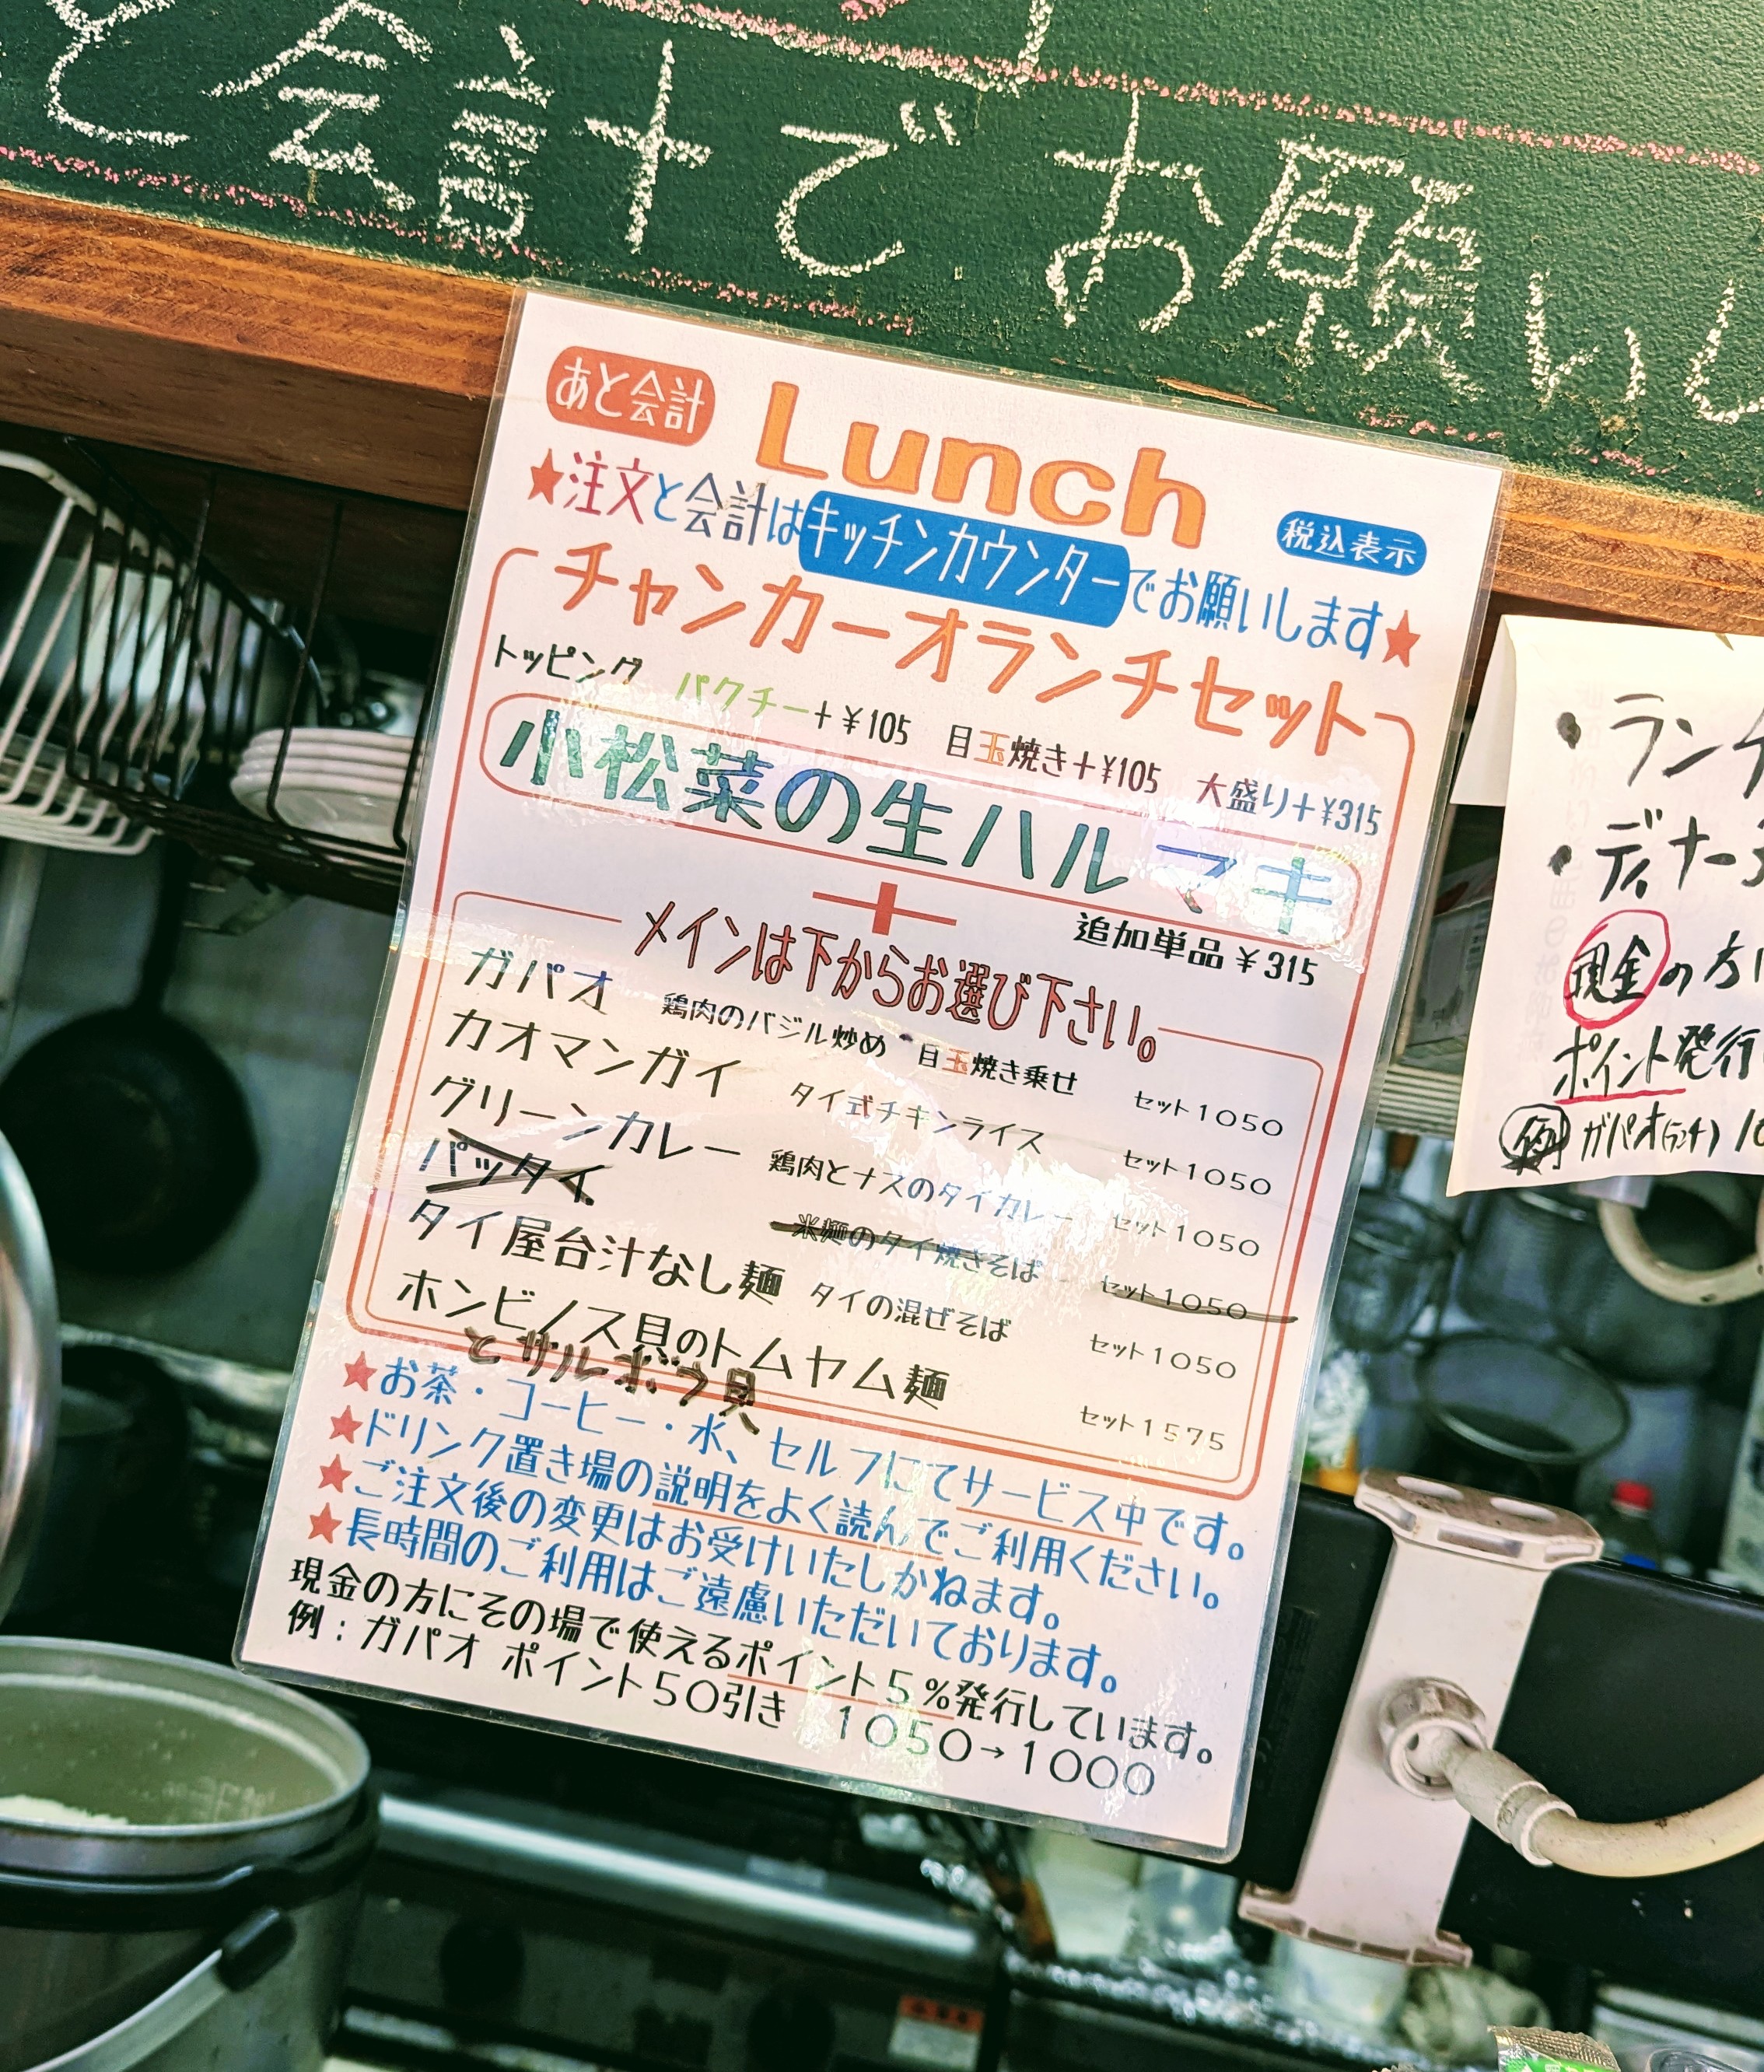 と会計でお願いし
あと会計
Lunch
税込表示
★注文と会計はキッチンカウンターでお願いします★
チャンカーオランチセット
トッピング パクチー+¥105 目玉焼き+¥105 大盛り+¥315
小松菜の生ハルマキ
+
追加単品¥315
メインは下からお選び下さい。
ガパオ 鶏肉のバジル炒め 目玉焼き乗せ セット1050
カオマンガイ タイ式チキンライス セット1050
グリーンカレー 鶏肉とナスのタイカレー セット1050
パッタイ 米麺のタイ焼きそば セット1050
タイ屋台汁なし麺 タイの混ぜそば セット1050
ホンビノス貝のトムヤム麺 セット1575
とサルボウ貝
★お茶・コーヒー・水、セルフにてサービス中です。
★ドリンク置き場の説明をよく読んでご利用ください。
★ご注文後の変更はお受けいたしかねます。
★長時間のご利用はご遠慮いただいております。
現金の方にその場で使えるポイント5%発行しています。
例:ガパオ ポイント50引き 1050→1000
・ラン
・ディナー
現金の方
ポイント発行
例 ガパオ(ランチ)